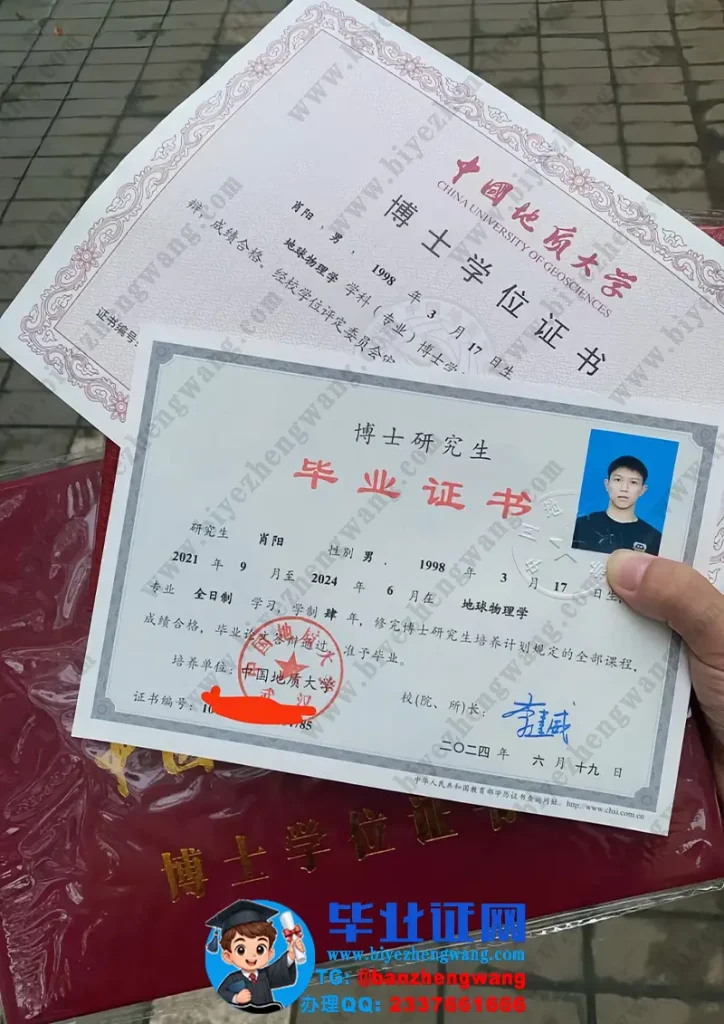 中國地质大学
CHINA UNIVERSITY OF GEOSCIENCES
博士学位证书
肖阳，男，1998 年 3 月 17 日生
地球物理学 学科（专业）博士学
辩，成绩合格。经校学位评定委员会
证书编号：
博士研究生
毕业证书
研究生 肖阳 性别 男，1998 年 3 月 17 日生，
2021 年 9 月至 2024 年 6 月在 地球物理学
专业 全日制 学习，学制 肆 年，修完博士研究生培养计划规定的全部课程，
成绩合格，毕业论文答辩通过，准予毕业。
培养单位：中国地质大学
中国地质大学
校(院、所)长：
证书编号：10 785
二〇二四 年 六 月 十九 日
中华人民共和国教育部学历证书查询网址：http://www.chsi.com.cn
博士学位证书
毕业证网
www.biyezhengwang.com
TG: @banzhengwang
办理QQ: 2337861666
www.biyezhengwang.com